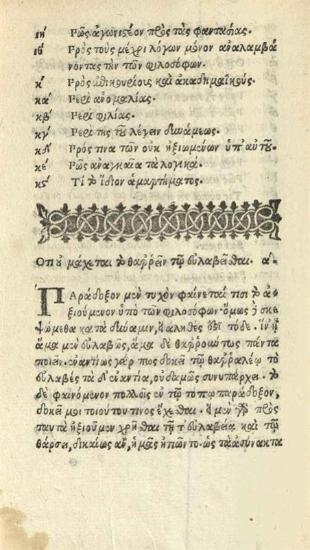 ιη Πῶς ἀγωνιστέον πρὸς τὰς φαντασίας.
ιθ Πρὸς τοὺς μέχρι λόγων μόνον ἀναλαμβά
νοντας τὴν τῶν φιλοσόφων.
κ Πρὸς ἐπικουρείους καὶ ἀκαδημαϊκούς.
κα Περὶ ἀνομαλίας.
κβ Περὶ φιλίας.
κγ Περὶ τῆς τοῦ λέγειν δυνάμεως.
κδ Πρός τινα τῶν οὐκ ἠξιωμένων ὑπ' αὐτοῦ.
κε Πῶς ἀναγκαῖα τὰ λογικά.
κς Τί τὸ ἴδιον ἁμαρτήματος.
Ὅτι οὐ μάχεται τὸ θαῤῥεῖν τῷ εὐλαβεῖσθαι. α.
ΠΑράδοξον μὲν τυχὸν φαίνεταί τισι τὸ ἀ
ξιούμενον ὑπὸ τῶν φιλοσόφων. ὅμως ἢ σκε
ψώμεθα κατὰ δύναμιν, εἰ ἀληθές ἐστι τόδε. ὅτι δεῖ
ἅμα μὲν εὐλαβῶς, ἅμα δὲ θαῤῥούντως πάντα
ποιεῖν. ἐναντίως γάρ πως δοκεῖ τῷ θαῤῥαλέῳ τὸ
εὐλαβές. τὰ δ' ἐναντία, οὐδαμῶς συνυπάρχει. τὸ
δὲ φαινόμενον πολλοῖς ἐν τῷ τόπῳ παράδοξον,
δοκεῖ μοι τοιούτου τινὸς ἔχεσθαι. εἰ μὲν γὰρ πρὸς
ταυτὰ ἠξιοῦμεν χρῆσθαι τῇ τ' εὐλαβείᾳ καὶ τῷ
θάρσει, δικαίως ἂν, ἡμᾶς ᾐτιῶντο. ὡς τὰ ἀσύνακτα